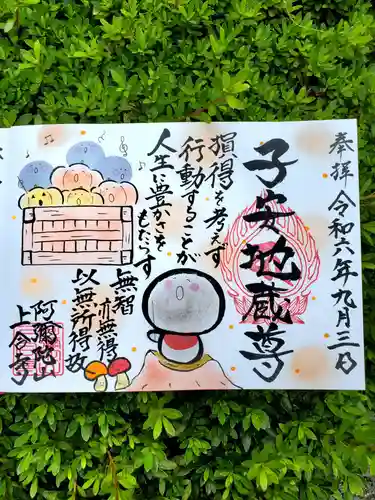 奉拝 令和六年九月三日
子安地蔵尊
損得を考えず
行動することが
人生に豊かさを
もたらす
無智亦無得
以無所得故
阿彌陀山
上念寺